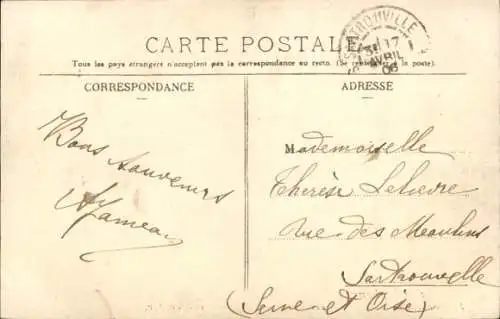 SARTROUVILLE
17
AVRIL
06
CARTE POSTALE
Tous les pays étrangers n'acceptent pas la correspondance au recto. (Se renseigner à la poste).
CORRESPONDANCE
ADRESSE
Bons Souvenirs
Mademoiselle
Thérèse Lelievre
Rue des Moulins
Sartrouville
(Seine et Oise)